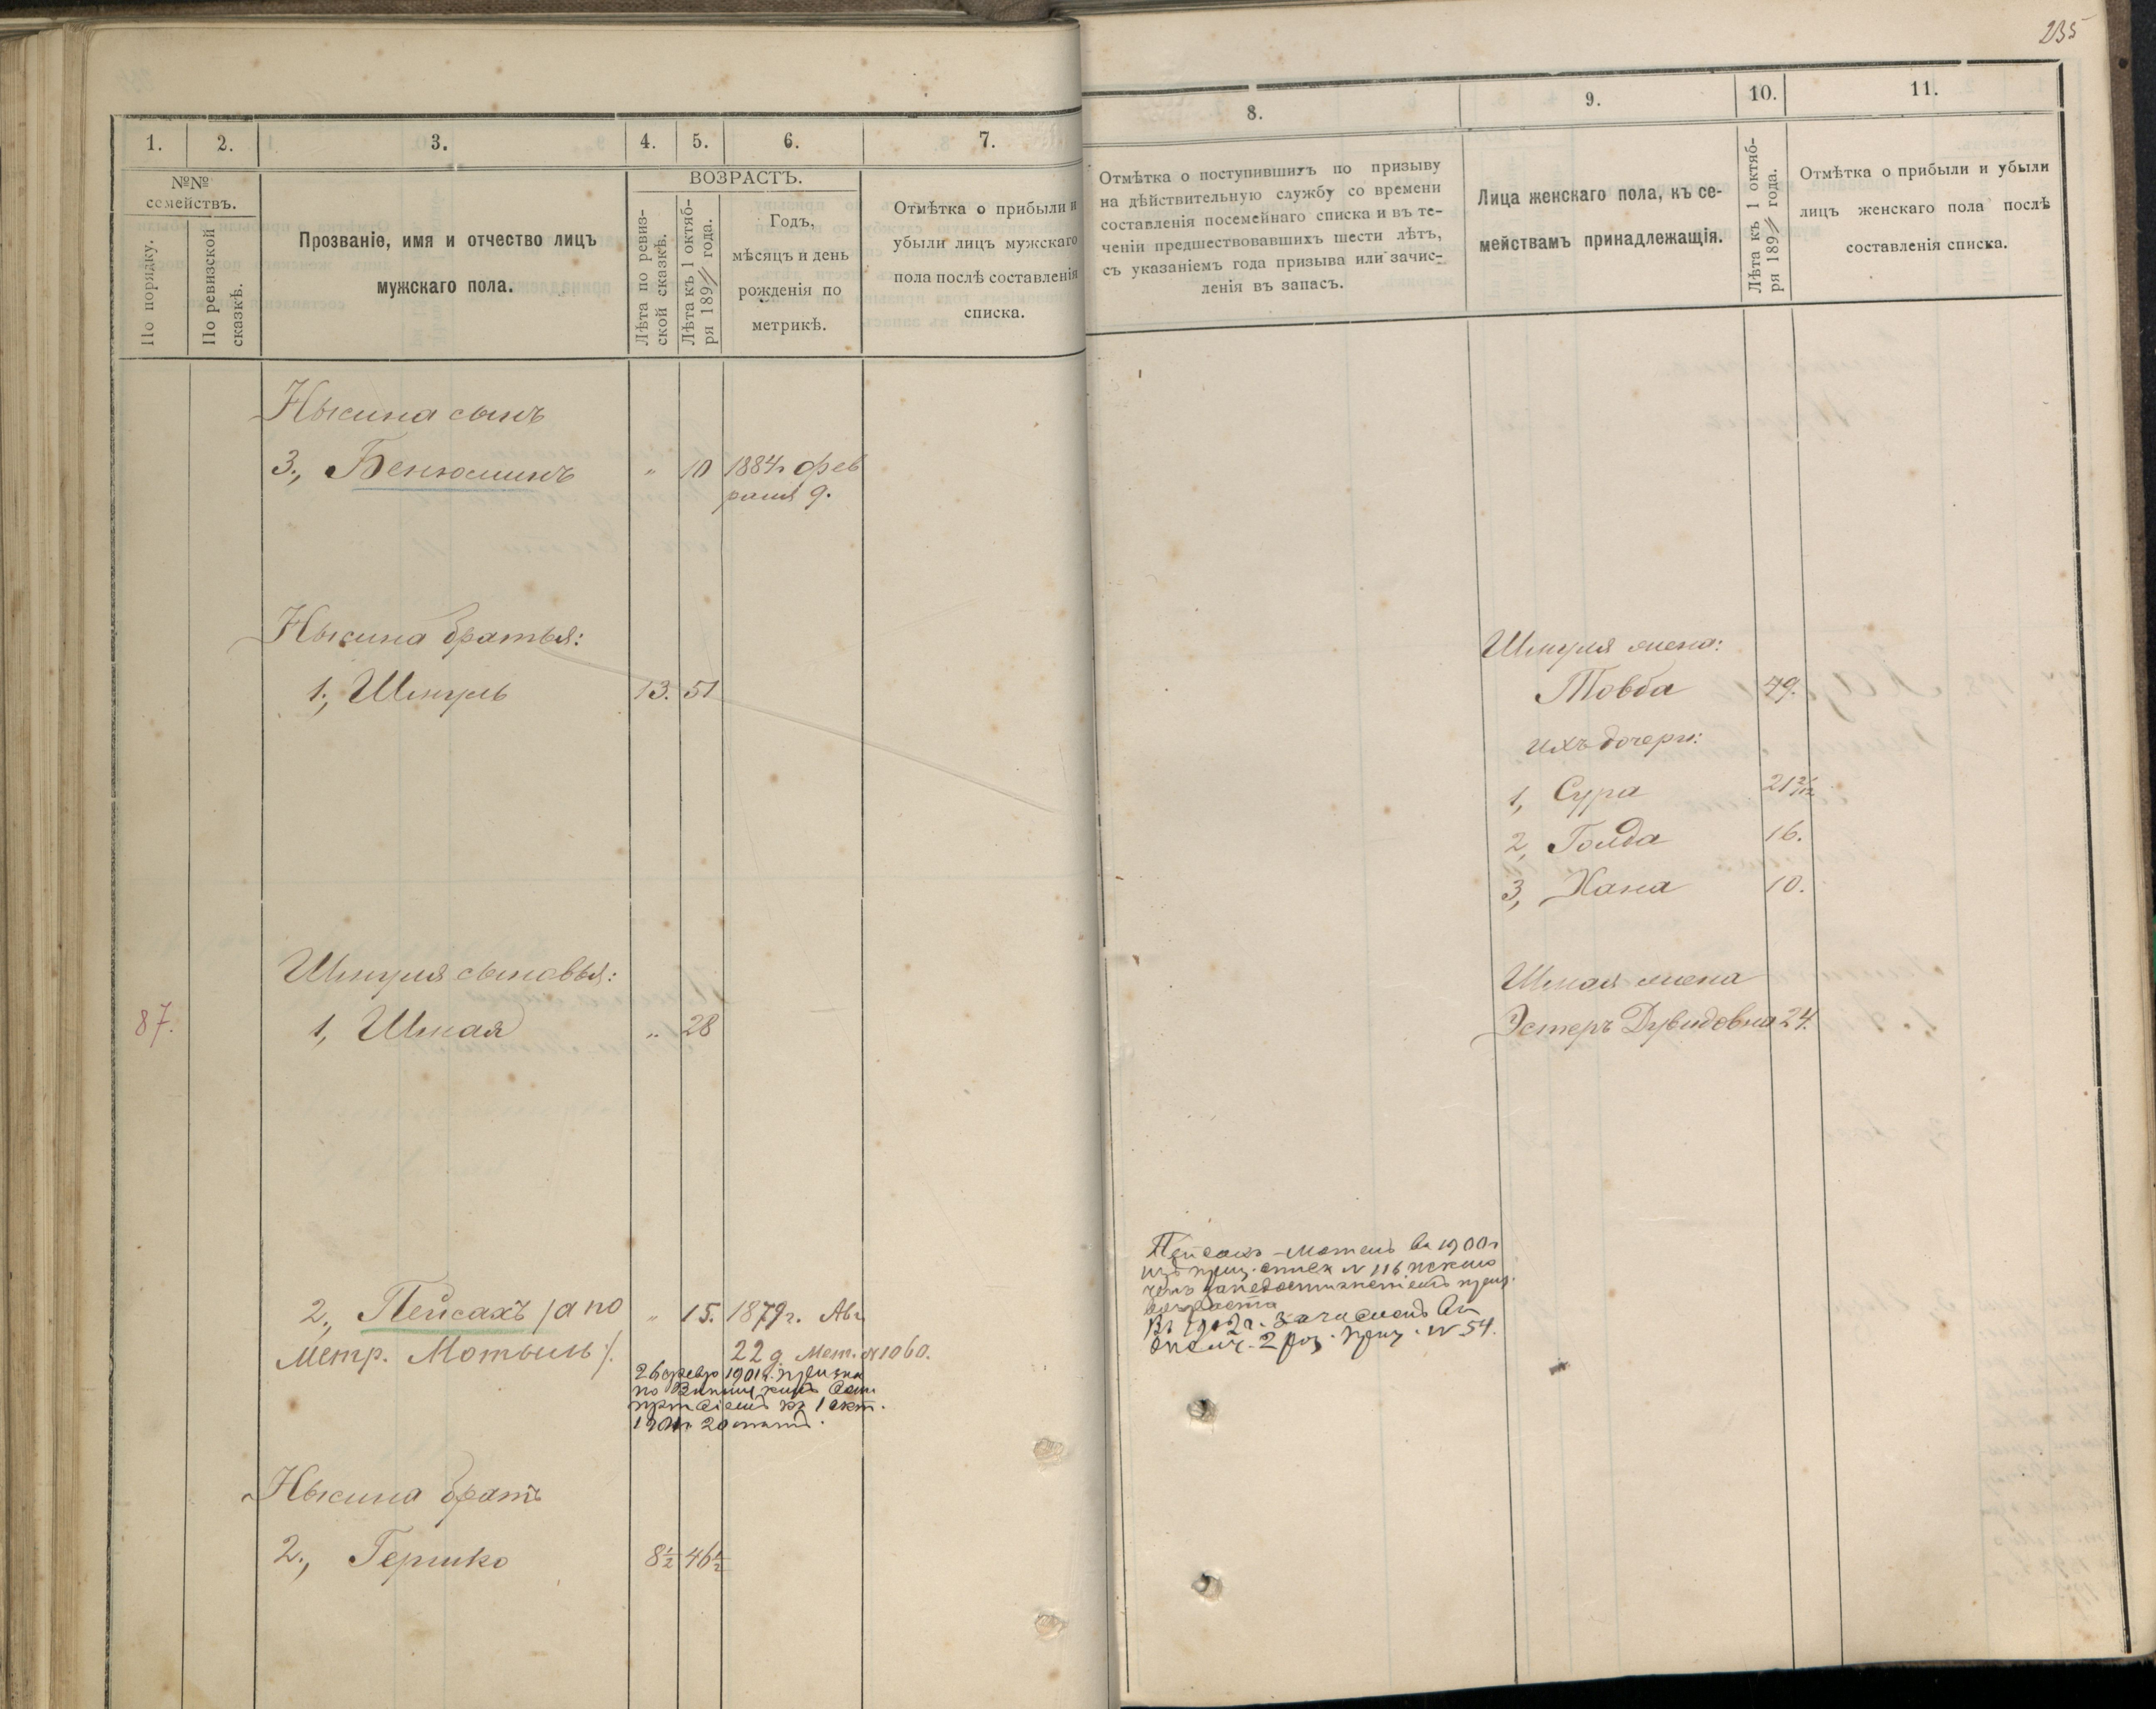 235
1.
2.
3.
4.
5.
6.
7.
№№
семействъ.
По порядку.
По ревизской
сказкѣ.
Прозваніе, имя и отчество лицъ
мужскаго пола.
ВОЗРАСТЪ.
Лѣта по ревиз-
ской сказкѣ.
Лѣта къ 1 октяб-
ря 189 года.
Годъ,
мѣсяцъ и день
рожденія по
метрикѣ.
Отмѣтка о прибыли и
убыли лицъ мужскаго
пола послѣ составленія
списка.
Нысина сынъ
3., Бенюминъ " 10 1884 г Фев
раля 9.
Нысина братья:
1., Шмуль 13. 51
Шмуля сыновья:
87.
1, Шмая " 28
2., Пейсахъ /а по " 15. 1879 г. Авг.
Метр. Мотыль/. 22 д. Мет. № 1060.
26 февр 1901 г. призна
по Винницкимъ
присѣ къ 1 окт.
20
Нысина братъ
2., Гершко 8½ 46½
8.
9.
10.
11.
Отмѣтка о поступившихъ по призыву
на дѣйствительную службу со времени
составленія посемейнаго списка и въ те-
ченіи предшествовавшихъ шести лѣтъ,
съ указаніемъ года призыва или зачис-
ленія въ запасъ.
Лица женскаго пола, къ се-
мействамъ принадлежащія.
Лѣта къ 1 октяб-
ря 189 года.
Отмѣтка о прибыли и убыли
лицъ женскаго пола послѣ
составленія списка.
Шмуля жена:
Товба 49.
ихъ дочери:
1, Сура 21 2/12
2, Голда 16.
3, Хана 10.
Шмая жена
Эстеръ Дувидовна 24.
Пейсахъ-Мотель въ 1900 г
изъ приз. списк № 116 исклю
ченъ за недостиженіемъ приз.
возраста
Въ 1902 г. зачисленъ въ
ополч. 2 раз. приз. № 54.